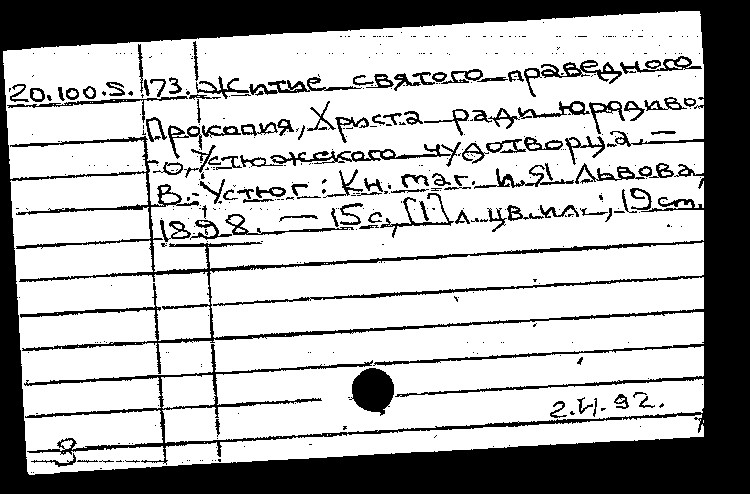 20.100.S. 173. Житие святого праведного
Прокопия, Христа ради юродиво-
го, Устюжского чудотворца. —
В.-Устюг: Кн. маг. И.Я. Львова,
1898. — 15 с., [1] л. цв. ил.; 19 cm.
3